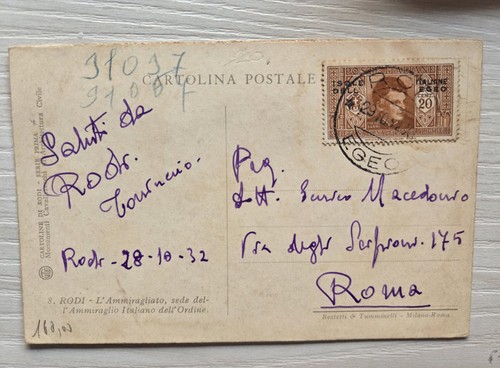 31037
31037
CARTOLINA POSTALE
ISOLE ITALIANE
DELL' EGEO
CENT. 20
EGEO
Saluti da
Rodi.
Rodi - 28-10-32
Preg.
Dott. Enrico
Via degli 175
Roma
CARTOLINE DI RODI - SERIE PRIMA
Monumenti Cavallereschi Civile
8. RODI - L'Ammiragliato, sede del-
l'Ammiraglio Italiano dell'Ordine.
Bestetti & Tumminelli - Milano-Roma
160,00